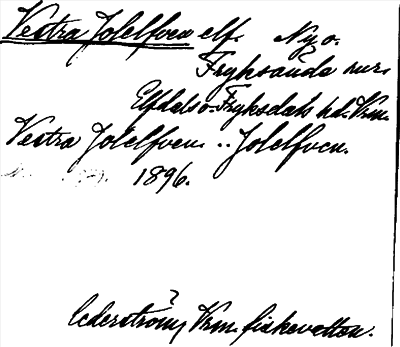 Vestra Jolelfven elf. Ny o.
Fryksände snr.
Elfdals o. Fryksdals hd. Vrm.
Vestra Jolelfven. .. Jolelfven.
1896.
?
Cederström, Vrm. fiskevatten.